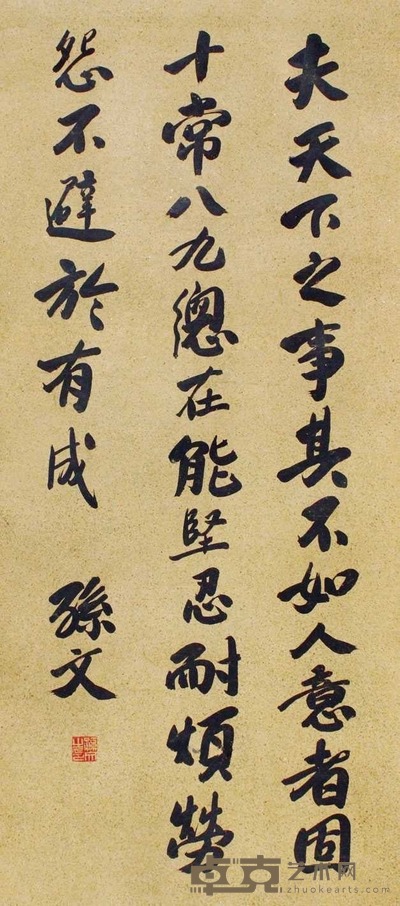 夫天下之事其不如人意者固
十常八九總在能堅忍耐煩勞
怨不避於有成
孫文
卓克艺术网
zhuokearts.com